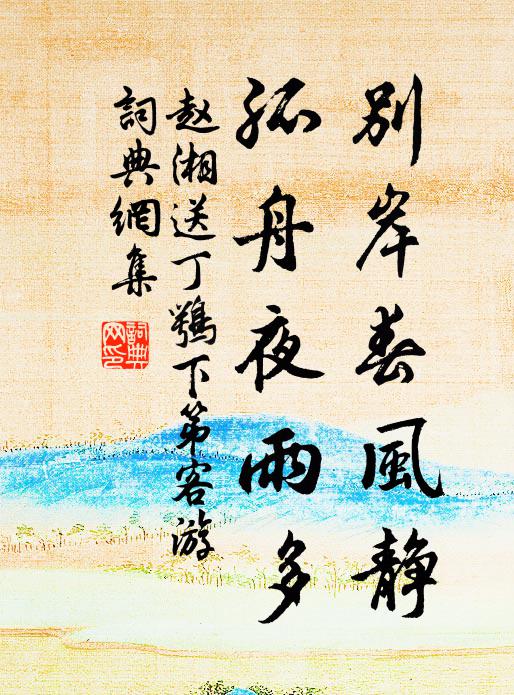 别岸春風静
孤舟夜雨多
赵湘送丁鶚下第客游
詞典網集
詞典网印